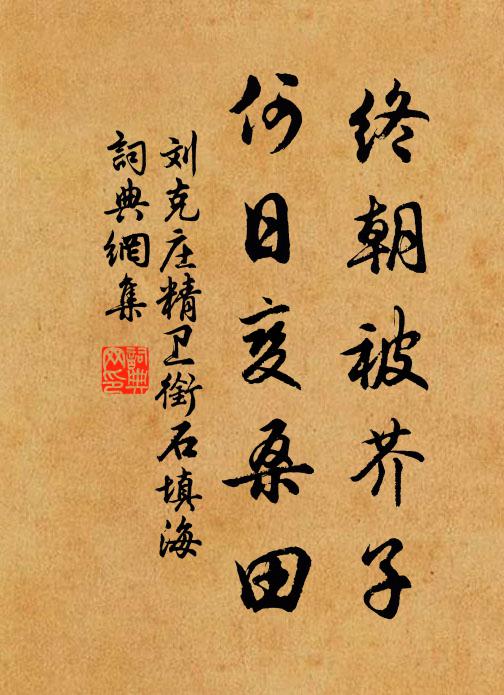 终朝被芥子
何日变桑田
刘克庄精卫銜石填海
詞典網集
詞典
网印